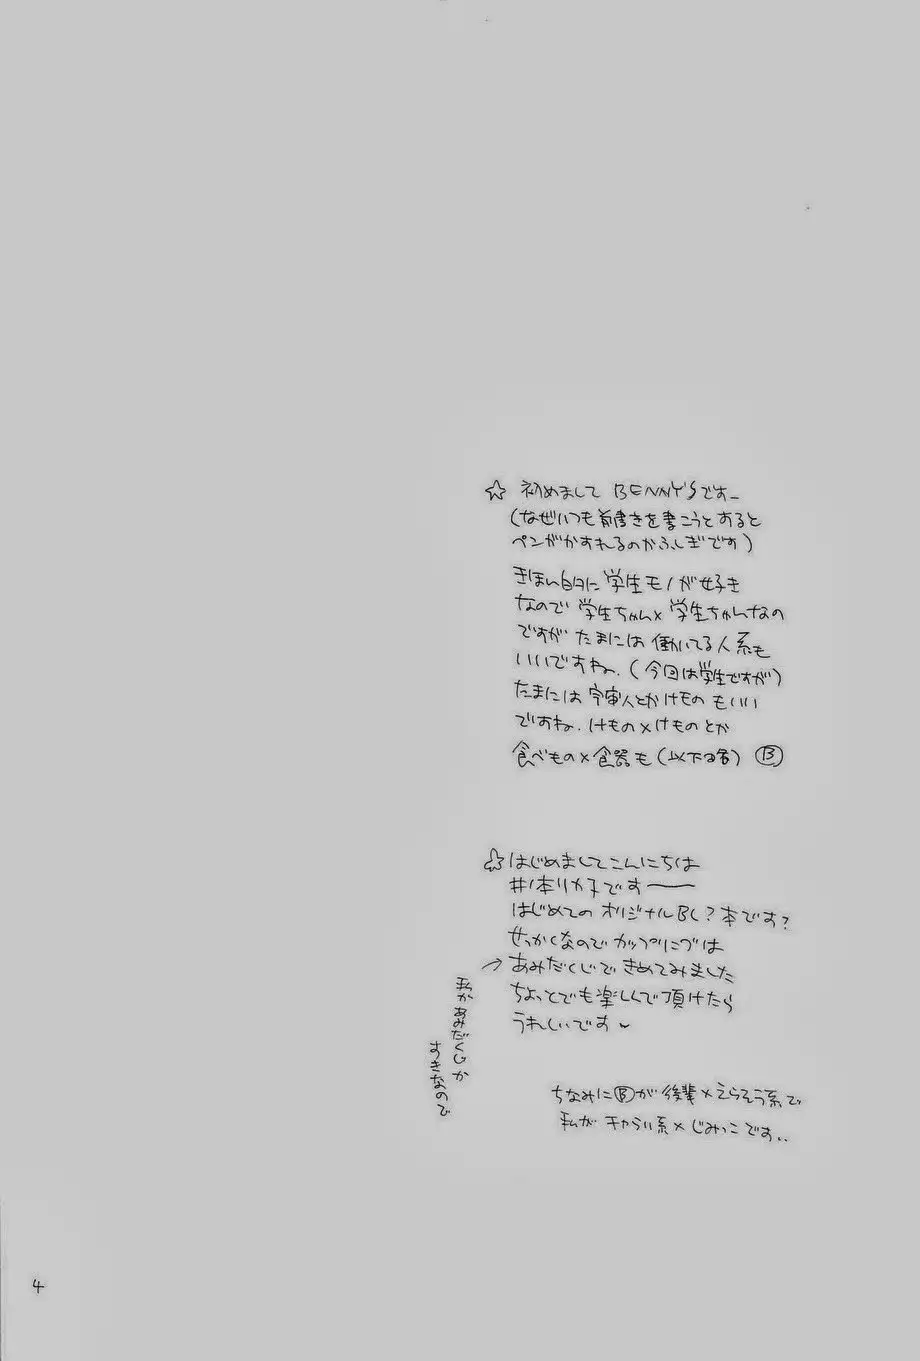 ☆ 初めまして BENNY'Sですー
(なぜいつも前書きを書こうとすると
ペンがかすれるのかふしぎです)
きほん的に学生モノが好き
なので 学生ちゃん×学生ちゃんなの
ですが たまには 働いてる人系も
いいですね.(今回は学生ですが)
たまには 宇宙人とかけもの もいい
ですね. けもの×けものとか
食べもの×食器も(以下略) Ⓑ
☆はじめましてこんにちは
井本リカ子です――
はじめての オリジナルBL?本です?
せっかくなので カップリングは
→あみだくじで きめてみました
ちょっとでも楽しんで頂けたら
うれしいです
私があみだくじが
すきなので
ちなみにⒷが 後輩×えらそう系で
私が チャラい系×じみっこです..
4